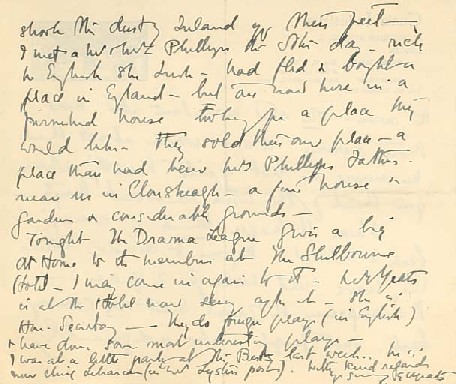 shook the dusty Ireland off their feet —
I met a Mr & Mrs Phillips the other day — rich
he English she Irish — had fled & bought a
place in England — but are now here in a
furnished house trying for a place they
would like — they sold their own place — a
place that had been Mrs Phillips father's
near us in Clonskeagh — a fine house &
garden & considerable grounds —
Tonight the Drama League gives a big
At Home to its members at the Shelbourne
Hotel — I may come in again to it — Mrs Yeats
is at the Hotel now seeing after it — she is
Hon. Secretary — They do foreign plays (in English)
& have done some most interesting plays —
I was at a little party at the last week
now (in post). With kind regards